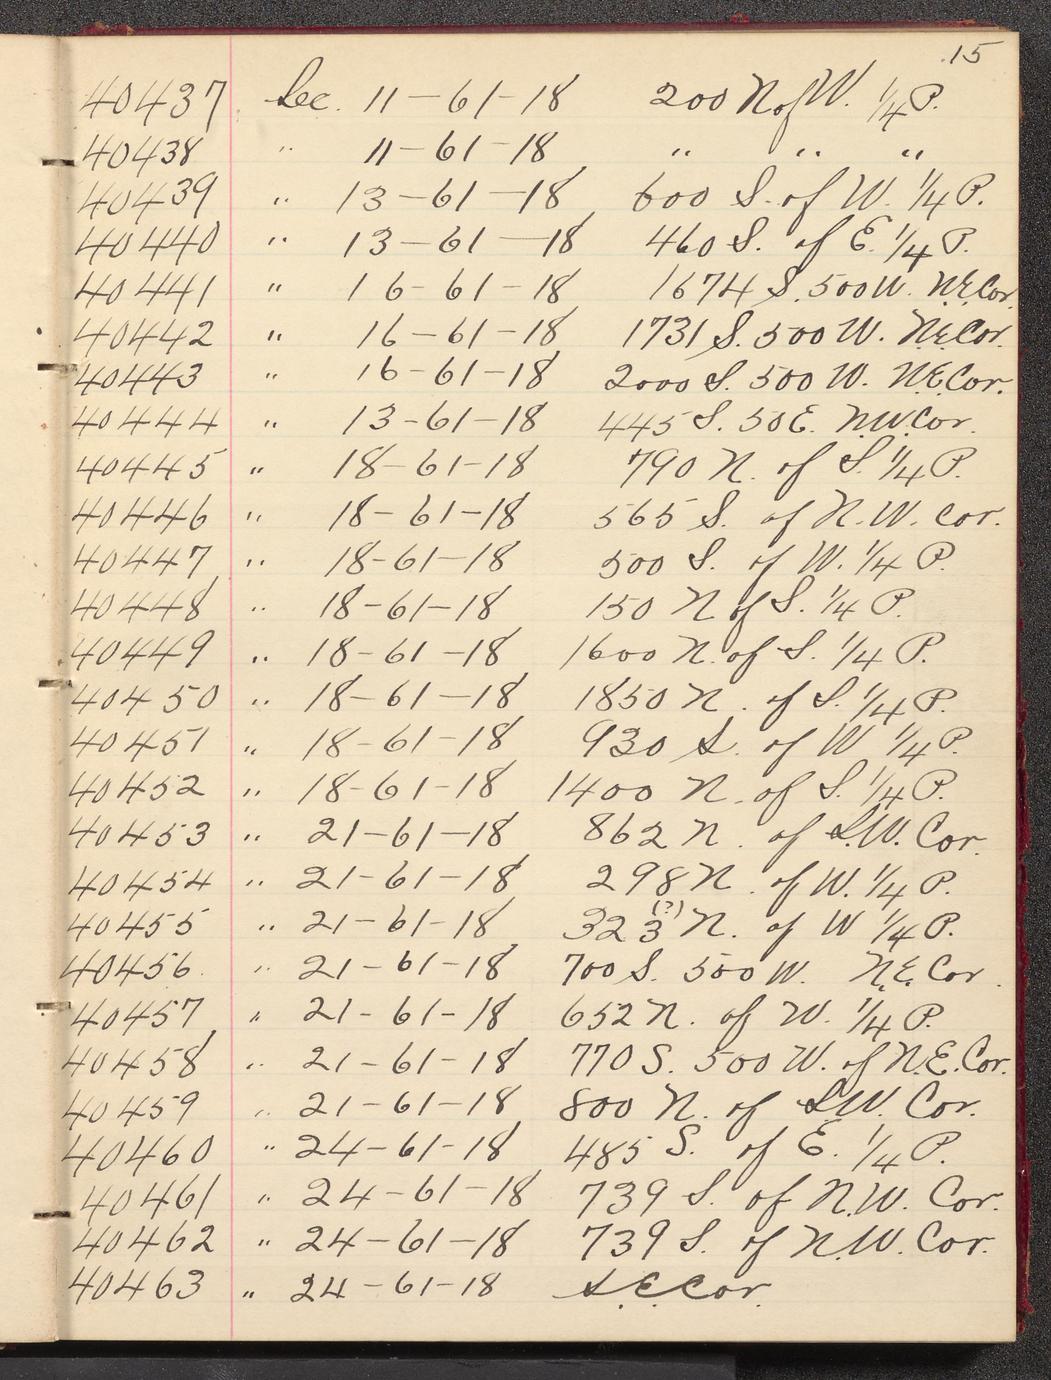 15
40437 Sec. 11-61-18 200 N of W. 1/4 P.
40438 " 11-61-18 " " "
40439 " 13-61-18 600 S. of W. 1/4 P.
40440 " 13-61-18 460 S. of E. 1/4 P.
40441 " 16-61-18 1674 S. 500 W. N.E. Cor.
40442 " 16-61-18 1731 S. 500 W. N.E. Cor.
40443 " 16-61-18 2000 S. 500 W. N.E. Cor.
40444 " 13-61-18 445 S. 50 E. N.W. Cor.
40445 " 18-61-18 790 N. of S. 1/4 P.
40446 " 18-61-18 565 S. of N.W. Cor.
40447 " 18-61-18 500 S. of W. 1/4 P.
40448 " 18-61-18 150 N of S. 1/4 P.
40449 " 18-61-18 1600 N. of S. 1/4 P.
40450 " 18-61-18 1850 N. of S. 1/4 P.
40451 " 18-61-18 930 S. of W 1/4 P.
40452 " 18-61-18 1400 N. of S. 1/4 P.
40453 " 21-61-18 862 N. of S.W. Cor.
40454 " 21-61-18 298 N. of W. 1/4 P.
40455 " 21-61-18 323 (?) N. of W 1/4 P.
40456 " 21-61-18 700 S. 500 W. N.E. Cor.
40457 " 21-61-18 652 N. of W. 1/4 P.
40458 " 21-61-18 770 S. 500 W. of N.E. Cor.
40459 " 21-61-18 800 N. of S.W. Cor.
40460 " 24-61-18 485 S. of E. 1/4 P.
40461 " 24-61-18 739 S. of N.W. Cor.
40462 " 24-61-18 739 S. of N.W. Cor.
40463 " 24-61-18 S.E. Cor.